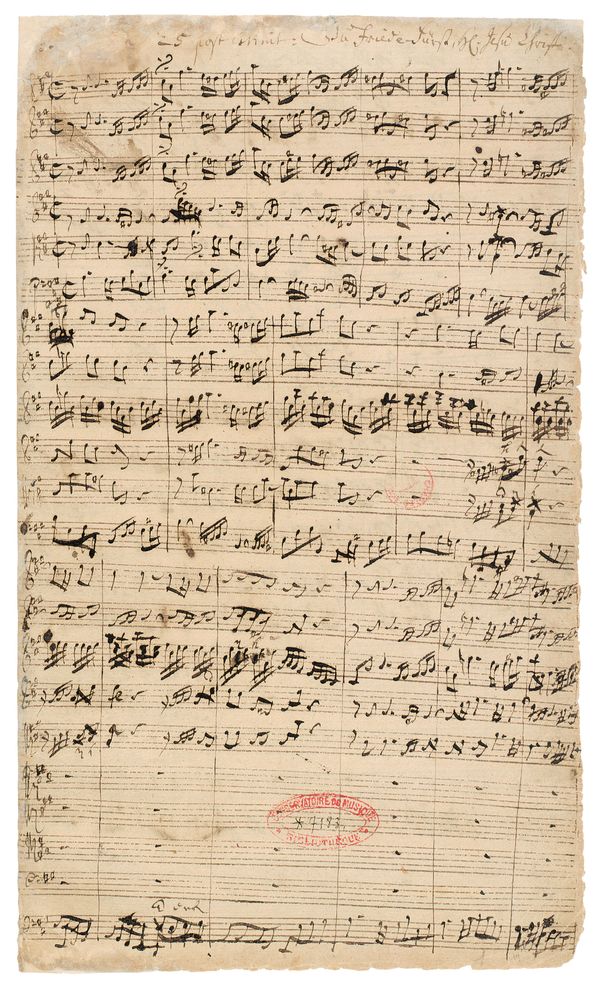 25 post Trinit: Du Friede Fürst, H. Jesu Christ
CONSERVATOIRE DE MUSIQUE
BIBLIOTHÈQUE